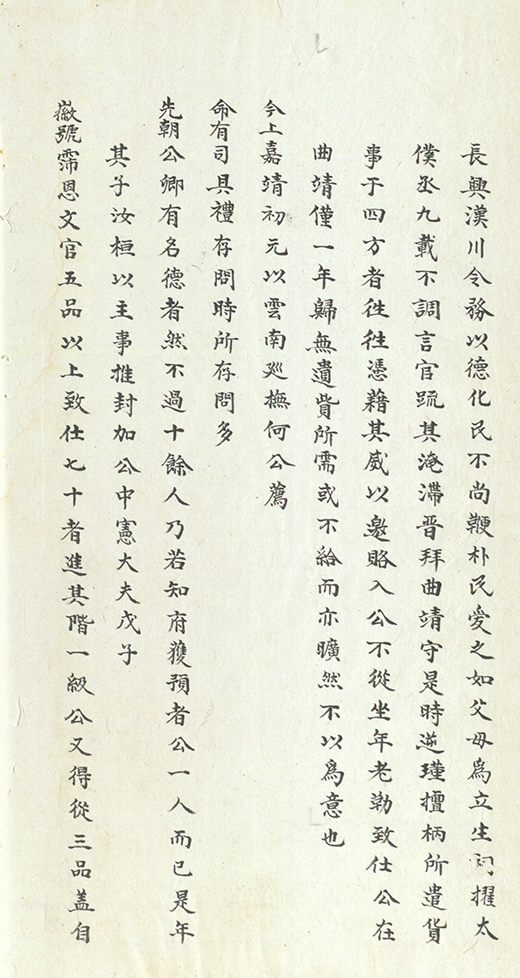 長興漢川令務以德化民不尚鞭朴民愛之如父母爲立生祠擢太
僕丞九載不調言官疏其淹滯晉拜曲靖守是時逆瑾擅柄所遣貨
事于四方者徃徃憑藉其威以邀賂入公不從坐年老勒致仕公在
曲靖僅一年歸無遺貲所需或不給而亦曠然不以爲意也
今上嘉靖初元以雲南廵撫何公薦
命有司具禮存問時所存問多
先朝公卿有名德者然不過十餘人乃若知府獲預者公一人而已是年
其子汝桓以主事推封加公中憲大夫戊子
徽號霈恩文官五品以上致仕七十者進其階一級公又得從三品盖自